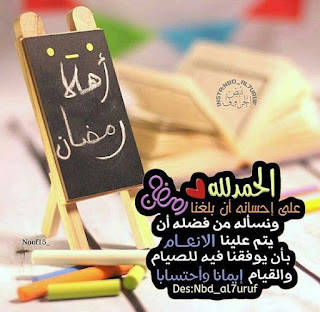 أهلاً
رمضان
INSTA:NBD_AL7URUF
نبض
الحروف
الحمدلله
على إحسانه أن بلغنا رمضان
ونسأله من فضله أن
يتم علينا الانعام
بأن يوفقنا فيه للصيام
والقيام إيمانا وأحتسابا
Des:Nbd_al7uruf
Noof15_